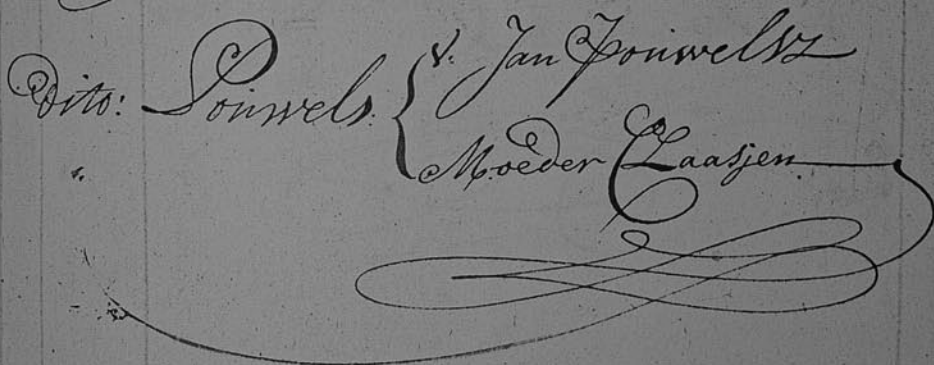 Dito: Pouwels. { V. Jan Pouwelsz
Moeder Claasjen